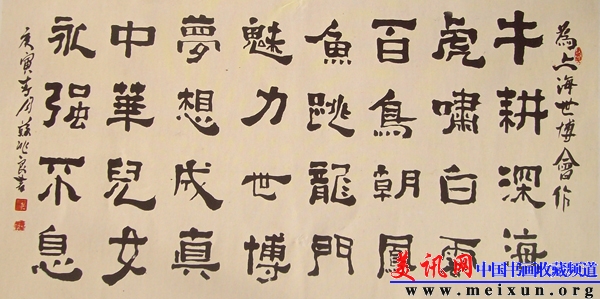 為上海世博會作
牛耕深海
虎嘯白雲
百鳥朝鳳
魚跳龍門
魅力世博
夢想成真
中華兒女
永强不息
庚寅春月書
美讯网 中国书画收藏频道
www.meixun.org